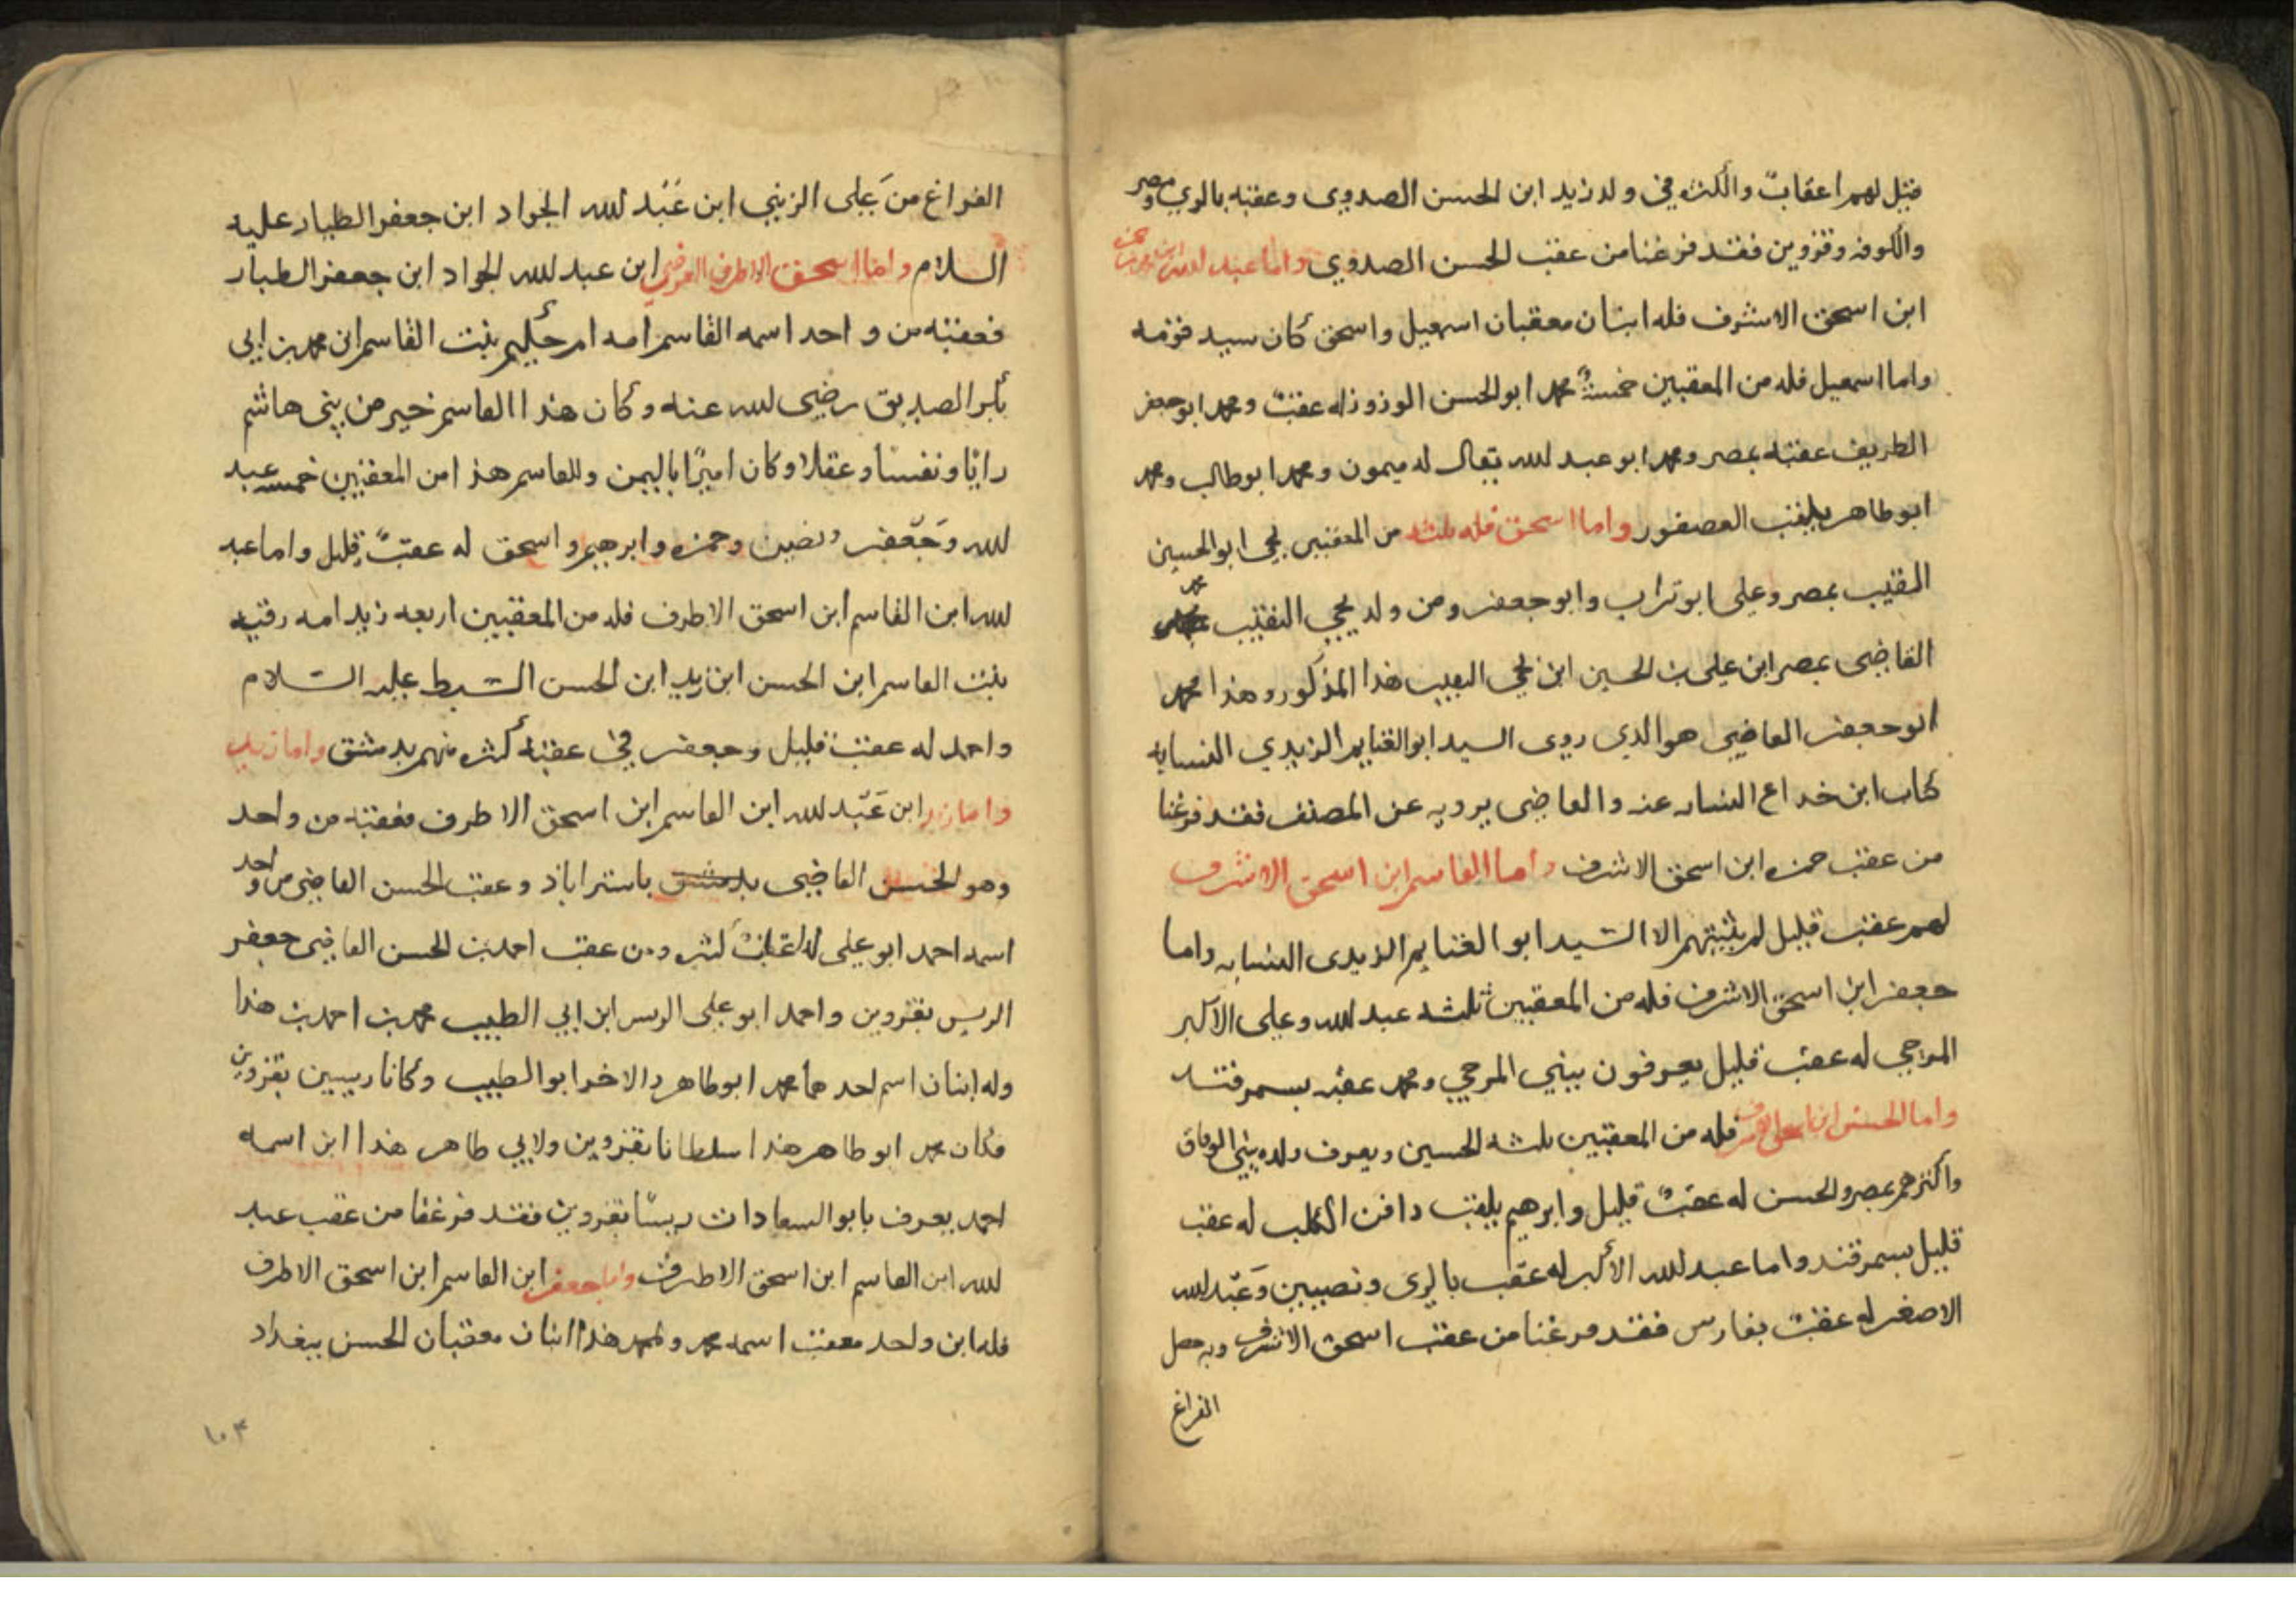 قيل لهم اعقابٌ والكثره في ولد زيد ابن الحسن الصدوى وعقبه بالري ومصر
والكوفه وقزوين فقد فرغنا من عقب الحسن الصدوي واما عبد الله ابن
ابن اسحق الاشرف فله ابنان معقبان اسمعيل واسحق كان سيد قومه
واما اسمعيل فله من المعقبين خمسةٌ محمد ابو الحسن له عقبٌ ومحمد ابو جعفر
الطريف عقبه بمصر ومحمد ابو عبد الله يقال له ميمون ومحمد ابو طالب ومحمد
ابو طاهر يلقب العصفور واما اسحق فله ثلثه من المعقبين يحيى ابو الحسين
النقيب بمصر وعلى ابو تراب وابو جعفر ومن ولد يحيى النقيب محمد
القاضى بمصر ابن على بن الحسين ابن يحيى النقيب هذا المذكور وهذا محمد
ابو جعفر القاضي هو الذى روى السيد ابو الغنايم الزيدي النسابه
كتاب ابن خداع النسابه عنه والقاضى يرويه عن المصنف فقد فرغنا
من عقب حمزه ابن اسحق الاشرف واما القاسم ابن اسحق الاشرف
لهم عقب قليل لم يثبتهم الا السيد ابو الغنايم الزيدى النسابه واما
جعفر ابن اسحق الاشرف فله من المعقبين ثلثه عبد الله وعلى الاكبر
المرجي له عقب قليل يعرفون ببني المرجي ومحمد عقبه بسمرقند
واما الحسن ابن اسحق الاشرف فله من المعقبين ثلثه الحسين ويعرف ولده ببني
واكثرهم بمصر والحسن له عقبٌ قليل وابرهيم يلقب دافن الكلب له عقب
قليل بسمرقند واما عبد الله الأكبر له عقب بالرى ونصيبين وعبد الله
الاصغر له عقب بفارس فقد فرغنا من عقب اسحق الاشرف وبه حصل
الفراغ
الفراغ من على الزينبي ابن عبد الله الجواد ابن جعفر الطيار عليه
السلام واما اسحق الاطرف العرضي ابن عبد الله الجواد ابن جعفر الطيار
فعقبه من واحد اسمه القاسم امه ام حكيم بنت القاسم ابن محمد بن ابي
بكر الصديق رضى الله عنه وكان هذا القاسم خير من بنى هاشم
رايًا ونفسًا وعقلا وكان اميرًا باليمن وللقاسم هذا من المعقبين خمسه عبد
الله وجعفر وحمزه وابرهيم واسحق له عقبٌ قليل واما عبد
الله ابن القاسم ابن اسحق الاطرف فله من المعقبين اربعه زيد امه رقيه
بنت القاسم ابن الحسن ابن زيد ابن الحسن السبط عليه السلام
واحمد له عقب قليل وجعفر في عقبه كثره منهم بدمشق واما زيد
واما زيد ابن عبد الله ابن القاسم ابن اسحق الاطرف فعقبه من واحد
وهو الحسن القاضى بدمشق باستراباذ وعقب الحسن القاضى من واحد
اسمه احمد ابو على له اعقابٌ كثيره ومن عقب احمد بن الحسن القاضى جعفر
الريس بقزوين واحمد ابو على الريس ابن ابي الطيب محمد بن احمد بن هذا
وله ابنان اسم احدهما محمد ابو طاهر والاخر ابو الطيب وكانا رييسين بقزوين
فكان محمد ابو طاهر هذا سلطانا بقزوين ولابي طاهر هذا ابن اسمه
احمد يعرف بابو السعادات ريسًا بقزوين فقد فرغنا من عقب عبد
الله ابن القاسم ابن اسحق الاطرف واما جعفر ابن القاسم ابن اسحق الاطرف
فله ابن واحد معقب اسمه محمد ولمحمد هذا ابنان معقبان الحسن ببغداد
١٠٣